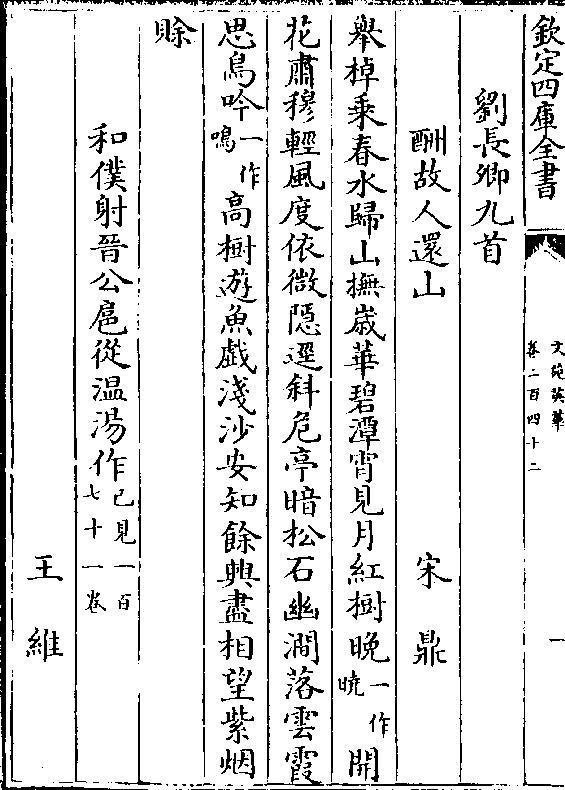 欽定四庫全書
文苑英華
卷二百四十二
一
劉長卿九首
酬故人還山　宋鼎
舉棹乗春水歸山撫歲華碧潭宵見月紅樹晩一作曉開
花肅穆輕風度依微隠逕斜危亭暗松石幽澗落雲霞
思鳥吟一作鳴高樹遊魚戯淺沙安知餘興盡相望紫烟
賖
和僕射晉公扈從温湯作已見一百七十一卷
王維